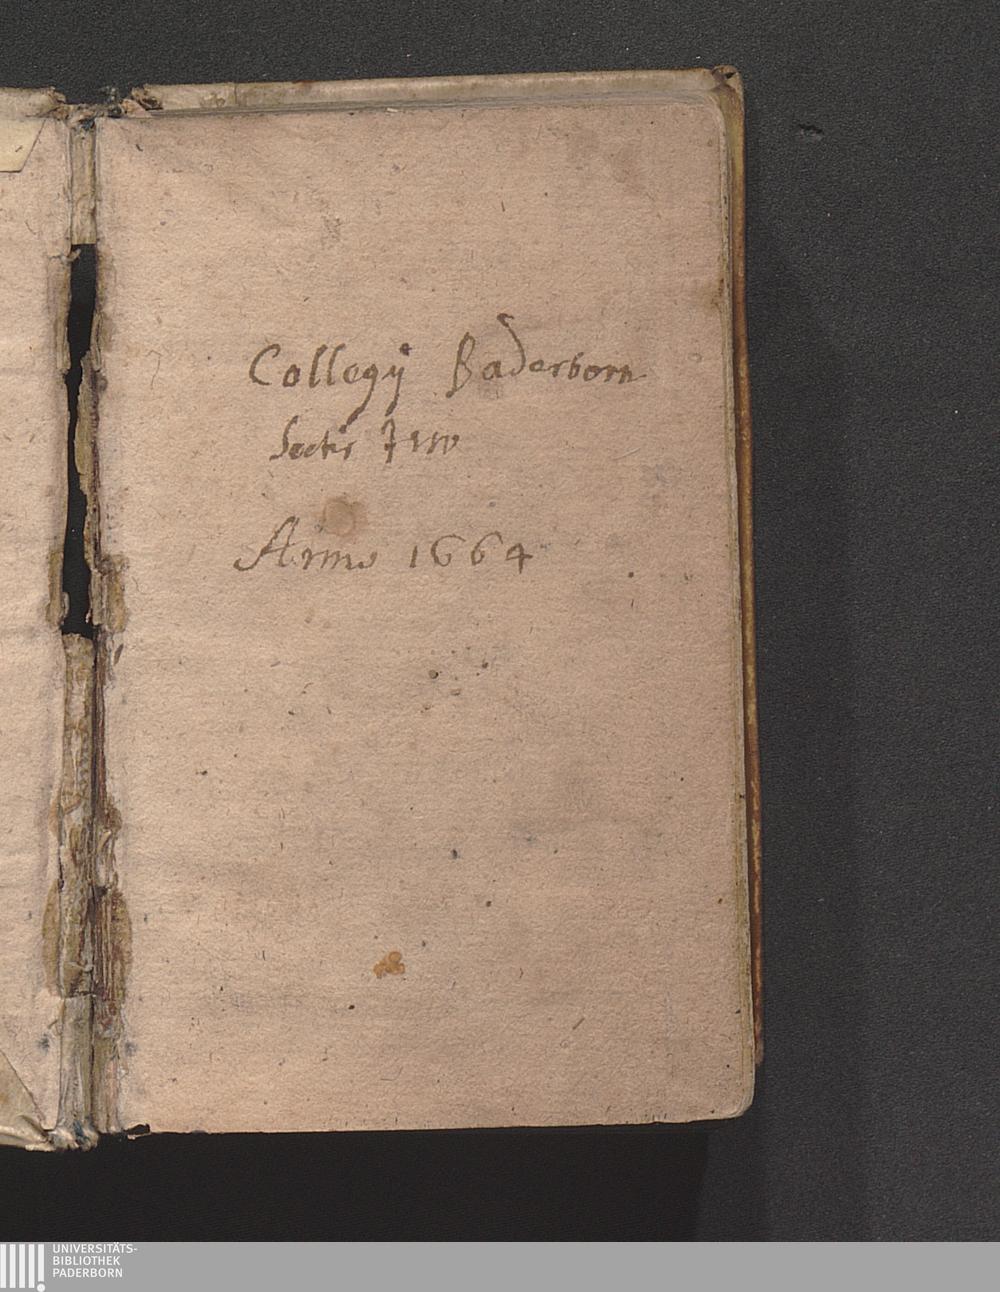 Collegij Paderborn
Soctis Jesv
Anno 1664
UNIVERSITÄTS-
BIBLIOTHEK
PADERBORN